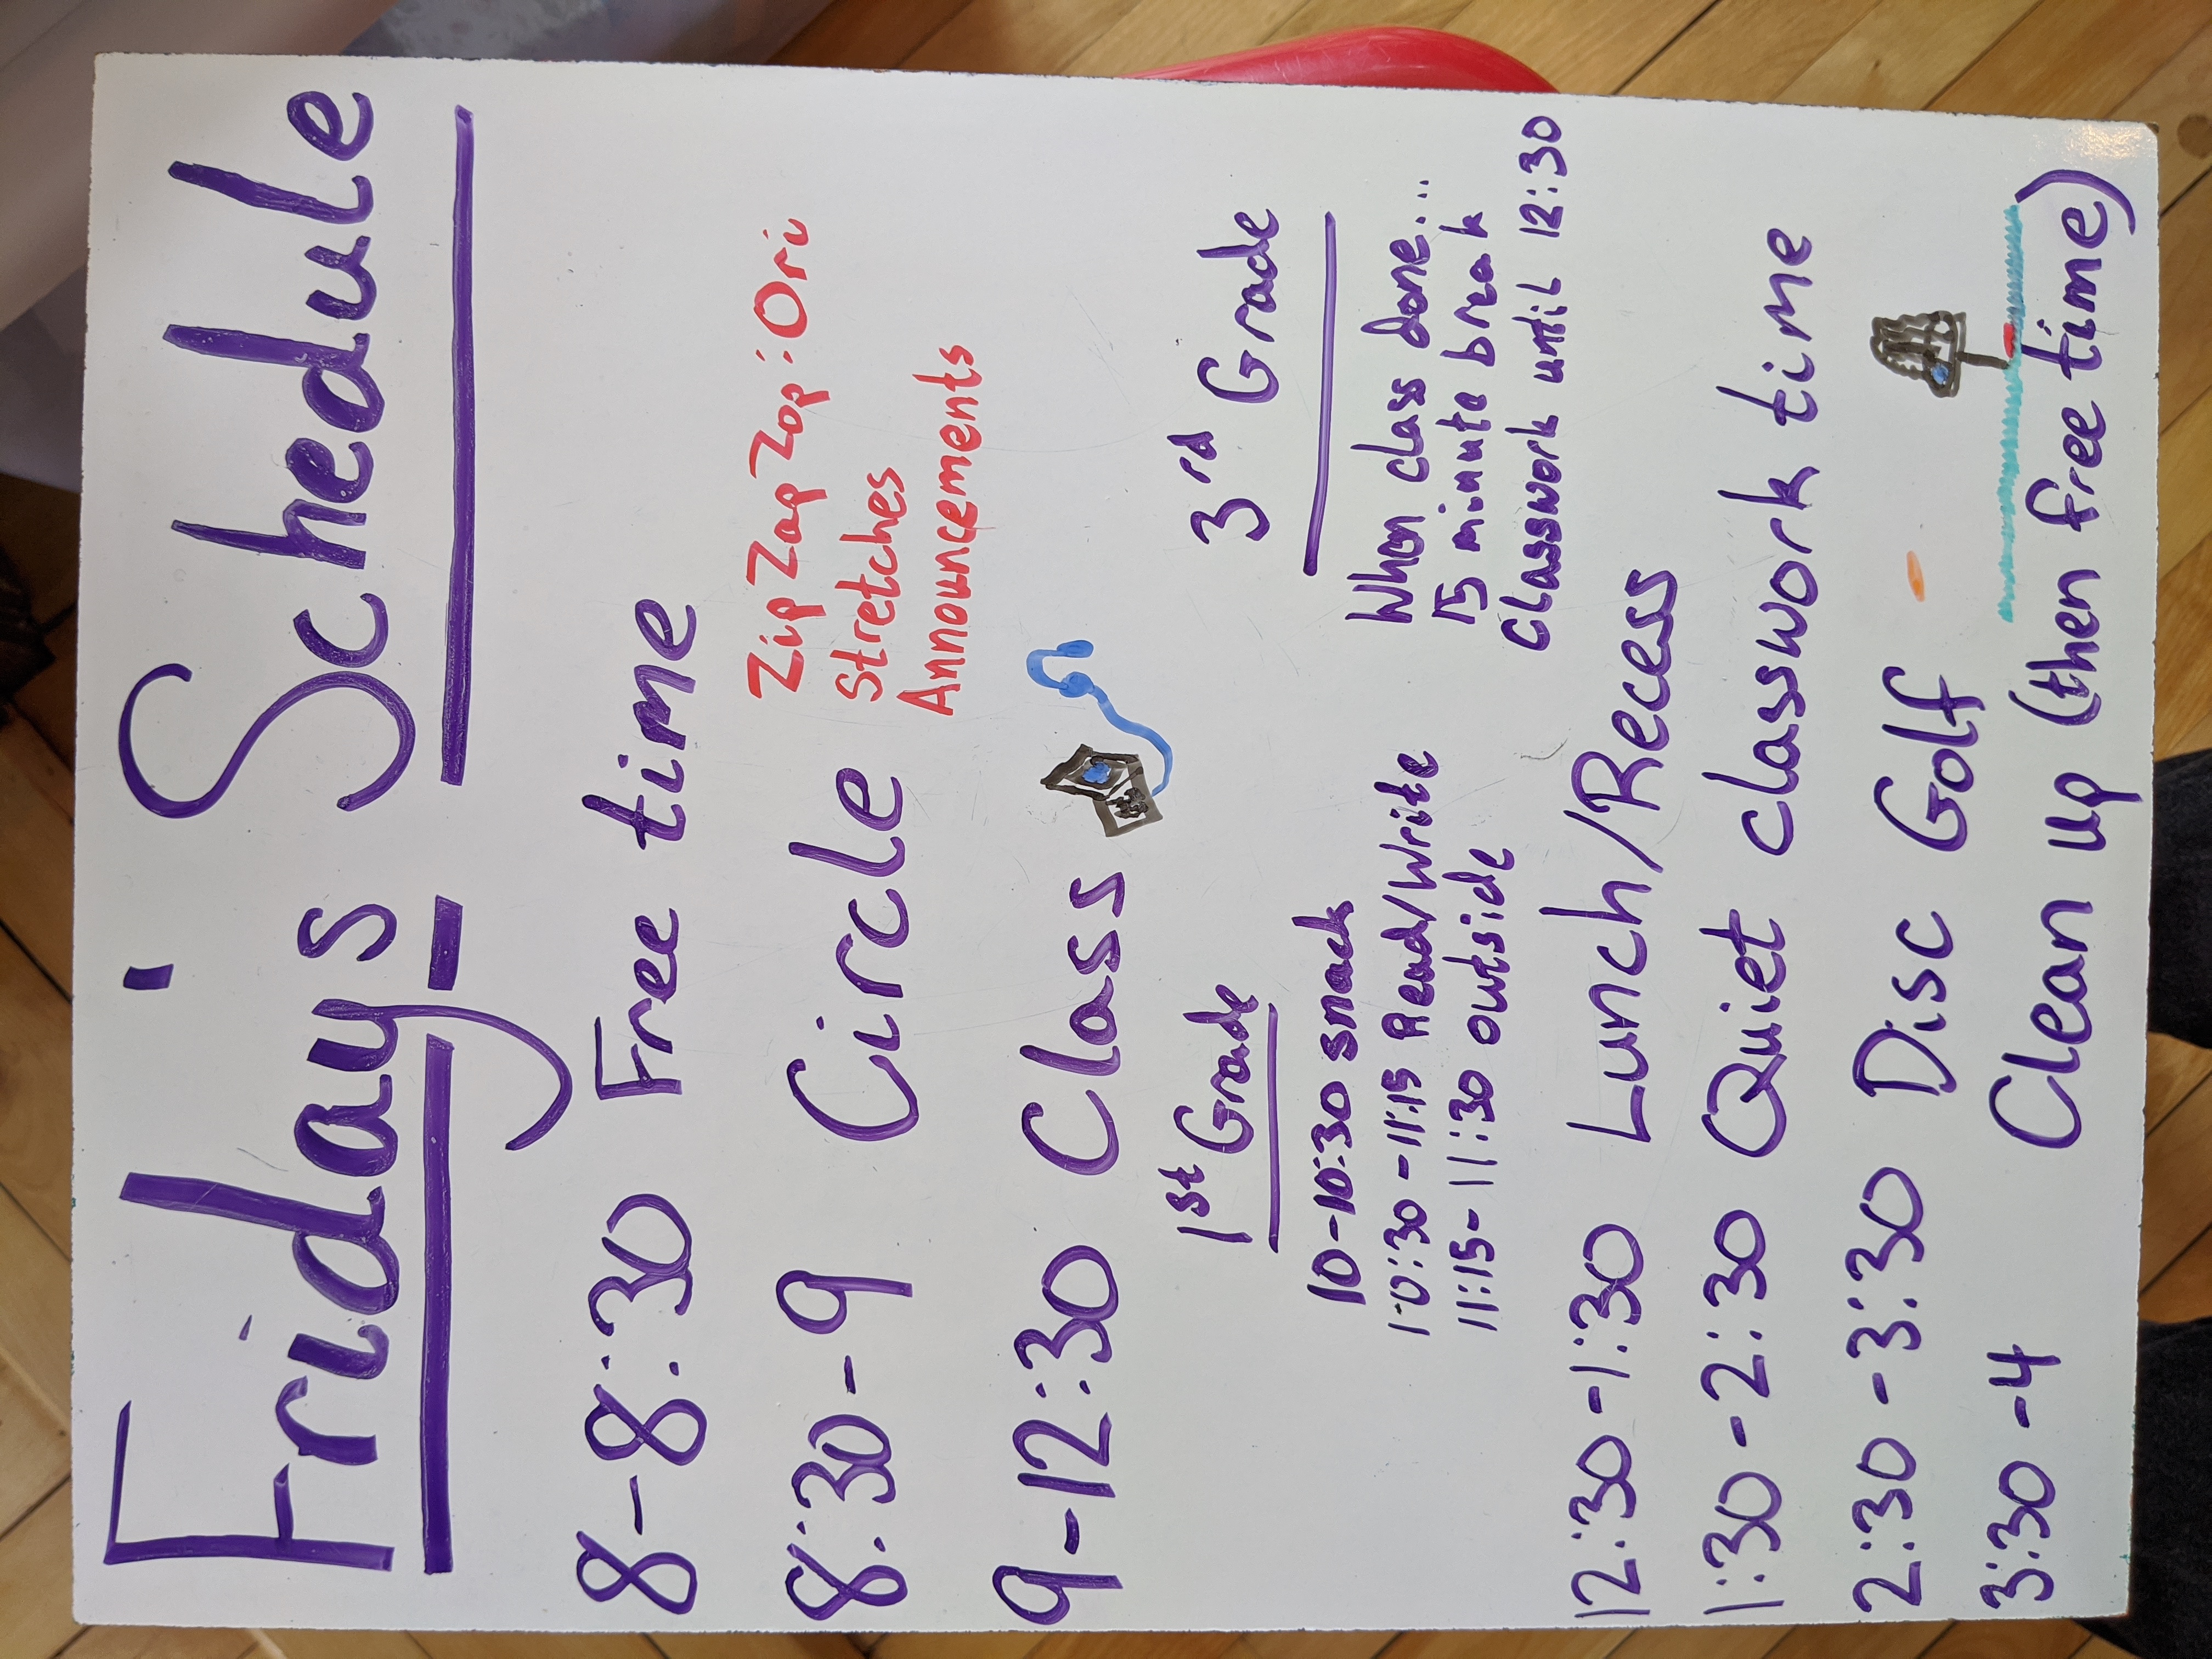 Friday's Schedule
8-8:30 Free time
8:30-9 Circle
Zip Zap Zop: Ori
Stretches
Announcements
9-12:30 Class
1st Grade
10-10:30 snack
10:30-11:15 Read/Write
11:15-11:30 outside
3rd Grade
When class done...
15 minute break
Classwork until 12:30
12:30-1:30 Lunch/Recess
1:30-2:30 Quiet classwork time
2:30-3:30 Disc Golf
3:30-4 Clean up (then free time)